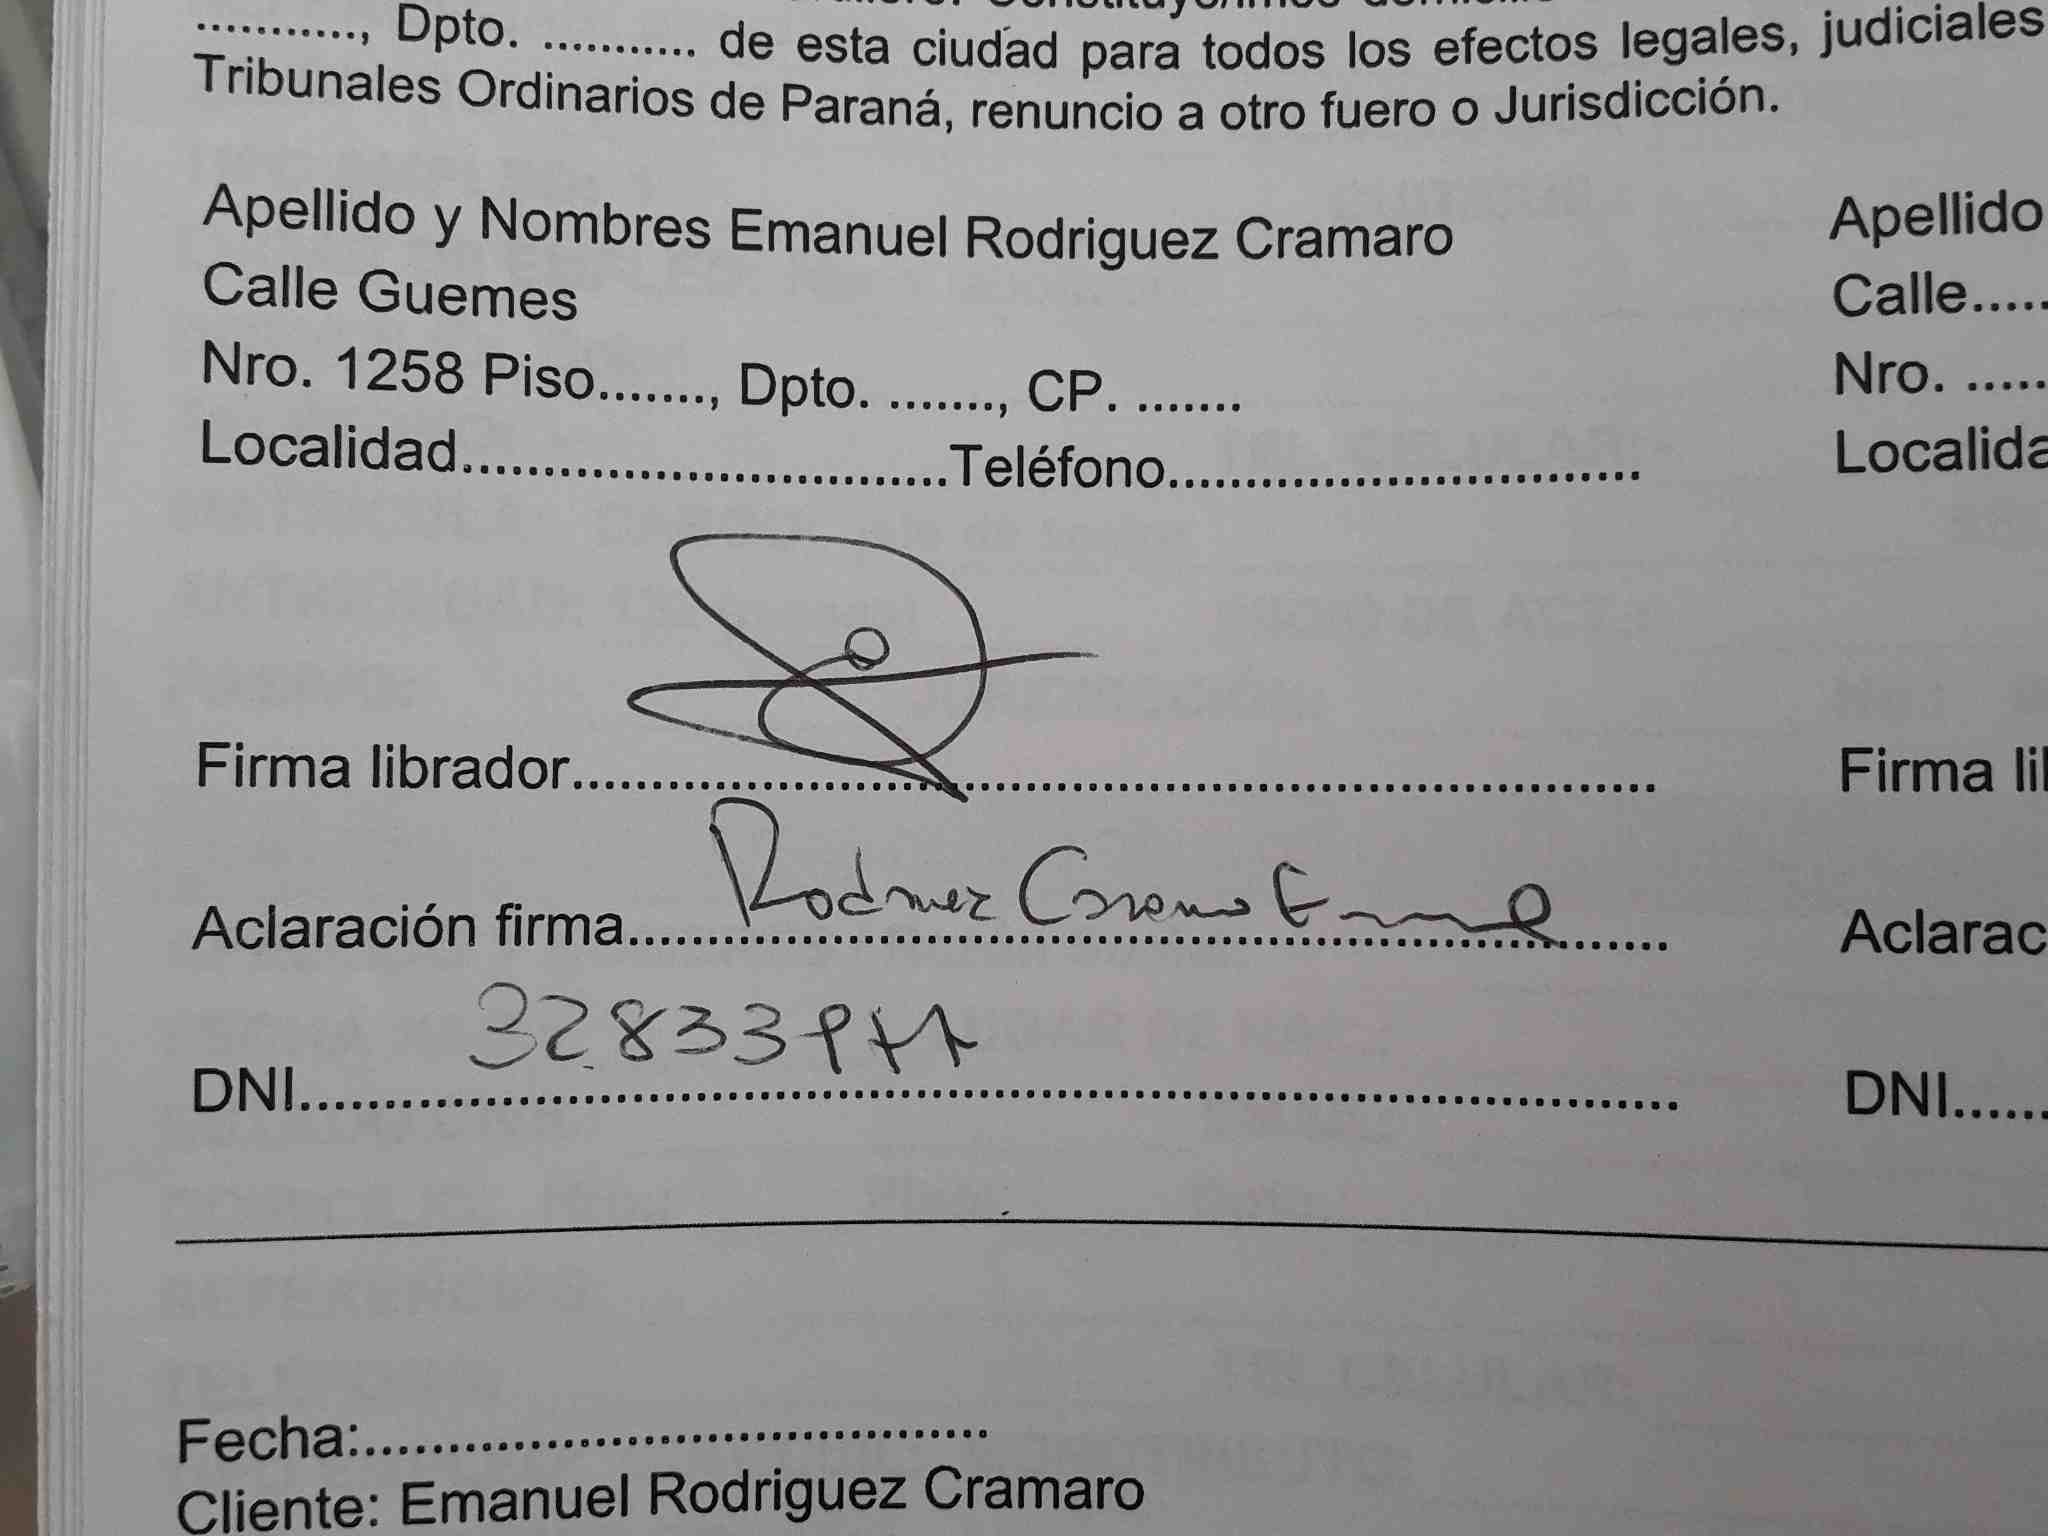 ..........., Dpto. ........... de esta ciudad para todos los efectos legales, judiciales
Tribunales Ordinarios de Paraná, renuncio a otro fuero o Jurisdicción.
Apellido y Nombres Emanuel Rodriguez Cramaro
Calle Guemes
Nro. 1258 Piso......., Dpto. ......., CP. .......
Localidad..............................Teléfono..............................
Firma librador
Aclaración firma
DNI
Fecha:
Cliente: Emanuel Rodriguez Cramaro
Apellido
Calle.....
Nro. .....
Localida
Firma lib
Aclarac
DNI......